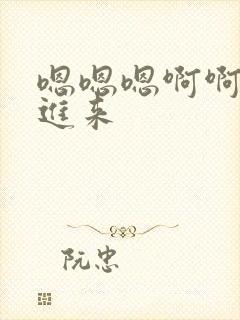 嗯嗯嗯啊啊
進来
阮忠